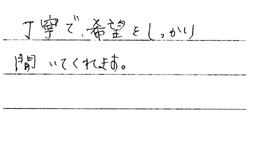 丁寧で、希望をしっかり
聞いてくれます。